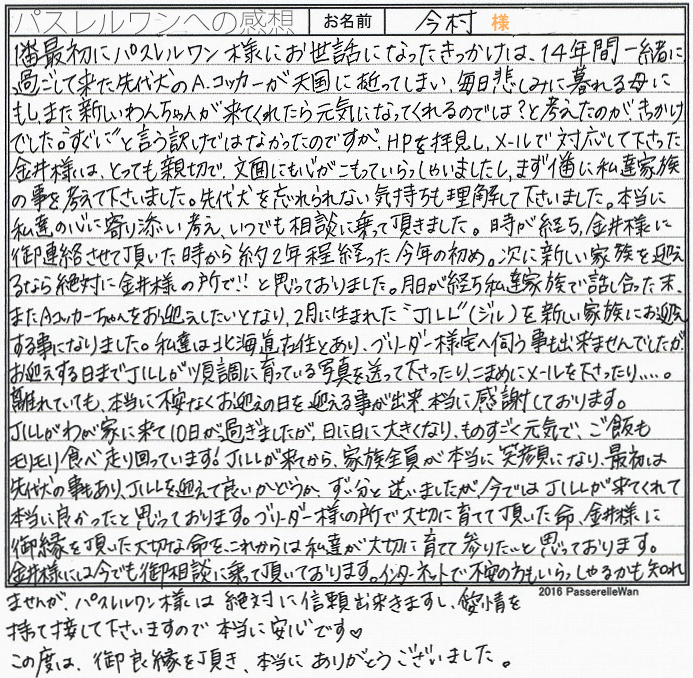 パスレルワンへの感想 お名前 今村 様
1番最初にパスレルワン様にお世話になったきっかけは、14年間一緒に
過ごして来た先代犬のA.コッカーが天国に逝ってしまい、毎日悲しみに暮れる母に
もし、また新しいわんちゃんが来てくれたら元気になってくれるのでは?と考えたのがきっかけ
でした。"すぐに"と言う訳けではなかったのですが、HPを拝見し、メールで対応して下さった
金井様は、とっても親切で、文面にも心がこもっていらっしゃいましたし、まず1番に私達家族
の事を考えて下さいました。先代犬を忘れられない気持ちも理解して下さいました。本当に
私達の心に寄り添い考え、いつでも相談に乗って頂きました。時が経ち、金井様に
御連絡させて頂いた時から約2年程経った今年の初め。次に新しい家族を迎え
るなら絶対に金井様の所で!!と思っておりました。月日が経ち私達家族で話し合った末、
またAコッカーちゃんをお迎えしたいとなり、2月に生まれた"JILL"(ジル)を新しい家族にお迎え
する事になりました。私達は北海道在住とあり、ブリーダー様宅へ伺う事も出来ませんでしたが
お迎えする日までJILLが順調に育っている写真を送って下さったり、こまめにメールを下さったり....。
離れていても、本当に不安なくお迎えの日を迎える事が出来、本当に感謝しております。
JILLがわが家に来て10日が過ぎましたが、日に日に大きくなり、ものすごく元気で、ご飯も
モリモリ食べ走り回っています!JILLが来てから、家族全員が本当に笑顔になり、最初は
先代犬の事もあり、JILLを迎えて良いかどうか、ずい分と迷いましたが、今ではJILLが来てくれて
本当に良かったと思っております。ブリーダー様の所で大切に育てて頂いた命、金井様に
御縁を頂いた大切な命を、これからは私達が大切に育て参りたいと思っております。
金井様には今でも御相談に乗って頂いております。インターネットで不安の方もいらっしゃるかも知れ
2016 PasserelleWan
ませんが、パスレルワン様は絶対に信頼出来きますし、愛情を
持って接して下さいますので本当に安心です♡
この度は、御良縁を頂き、本当にありがとうございました。